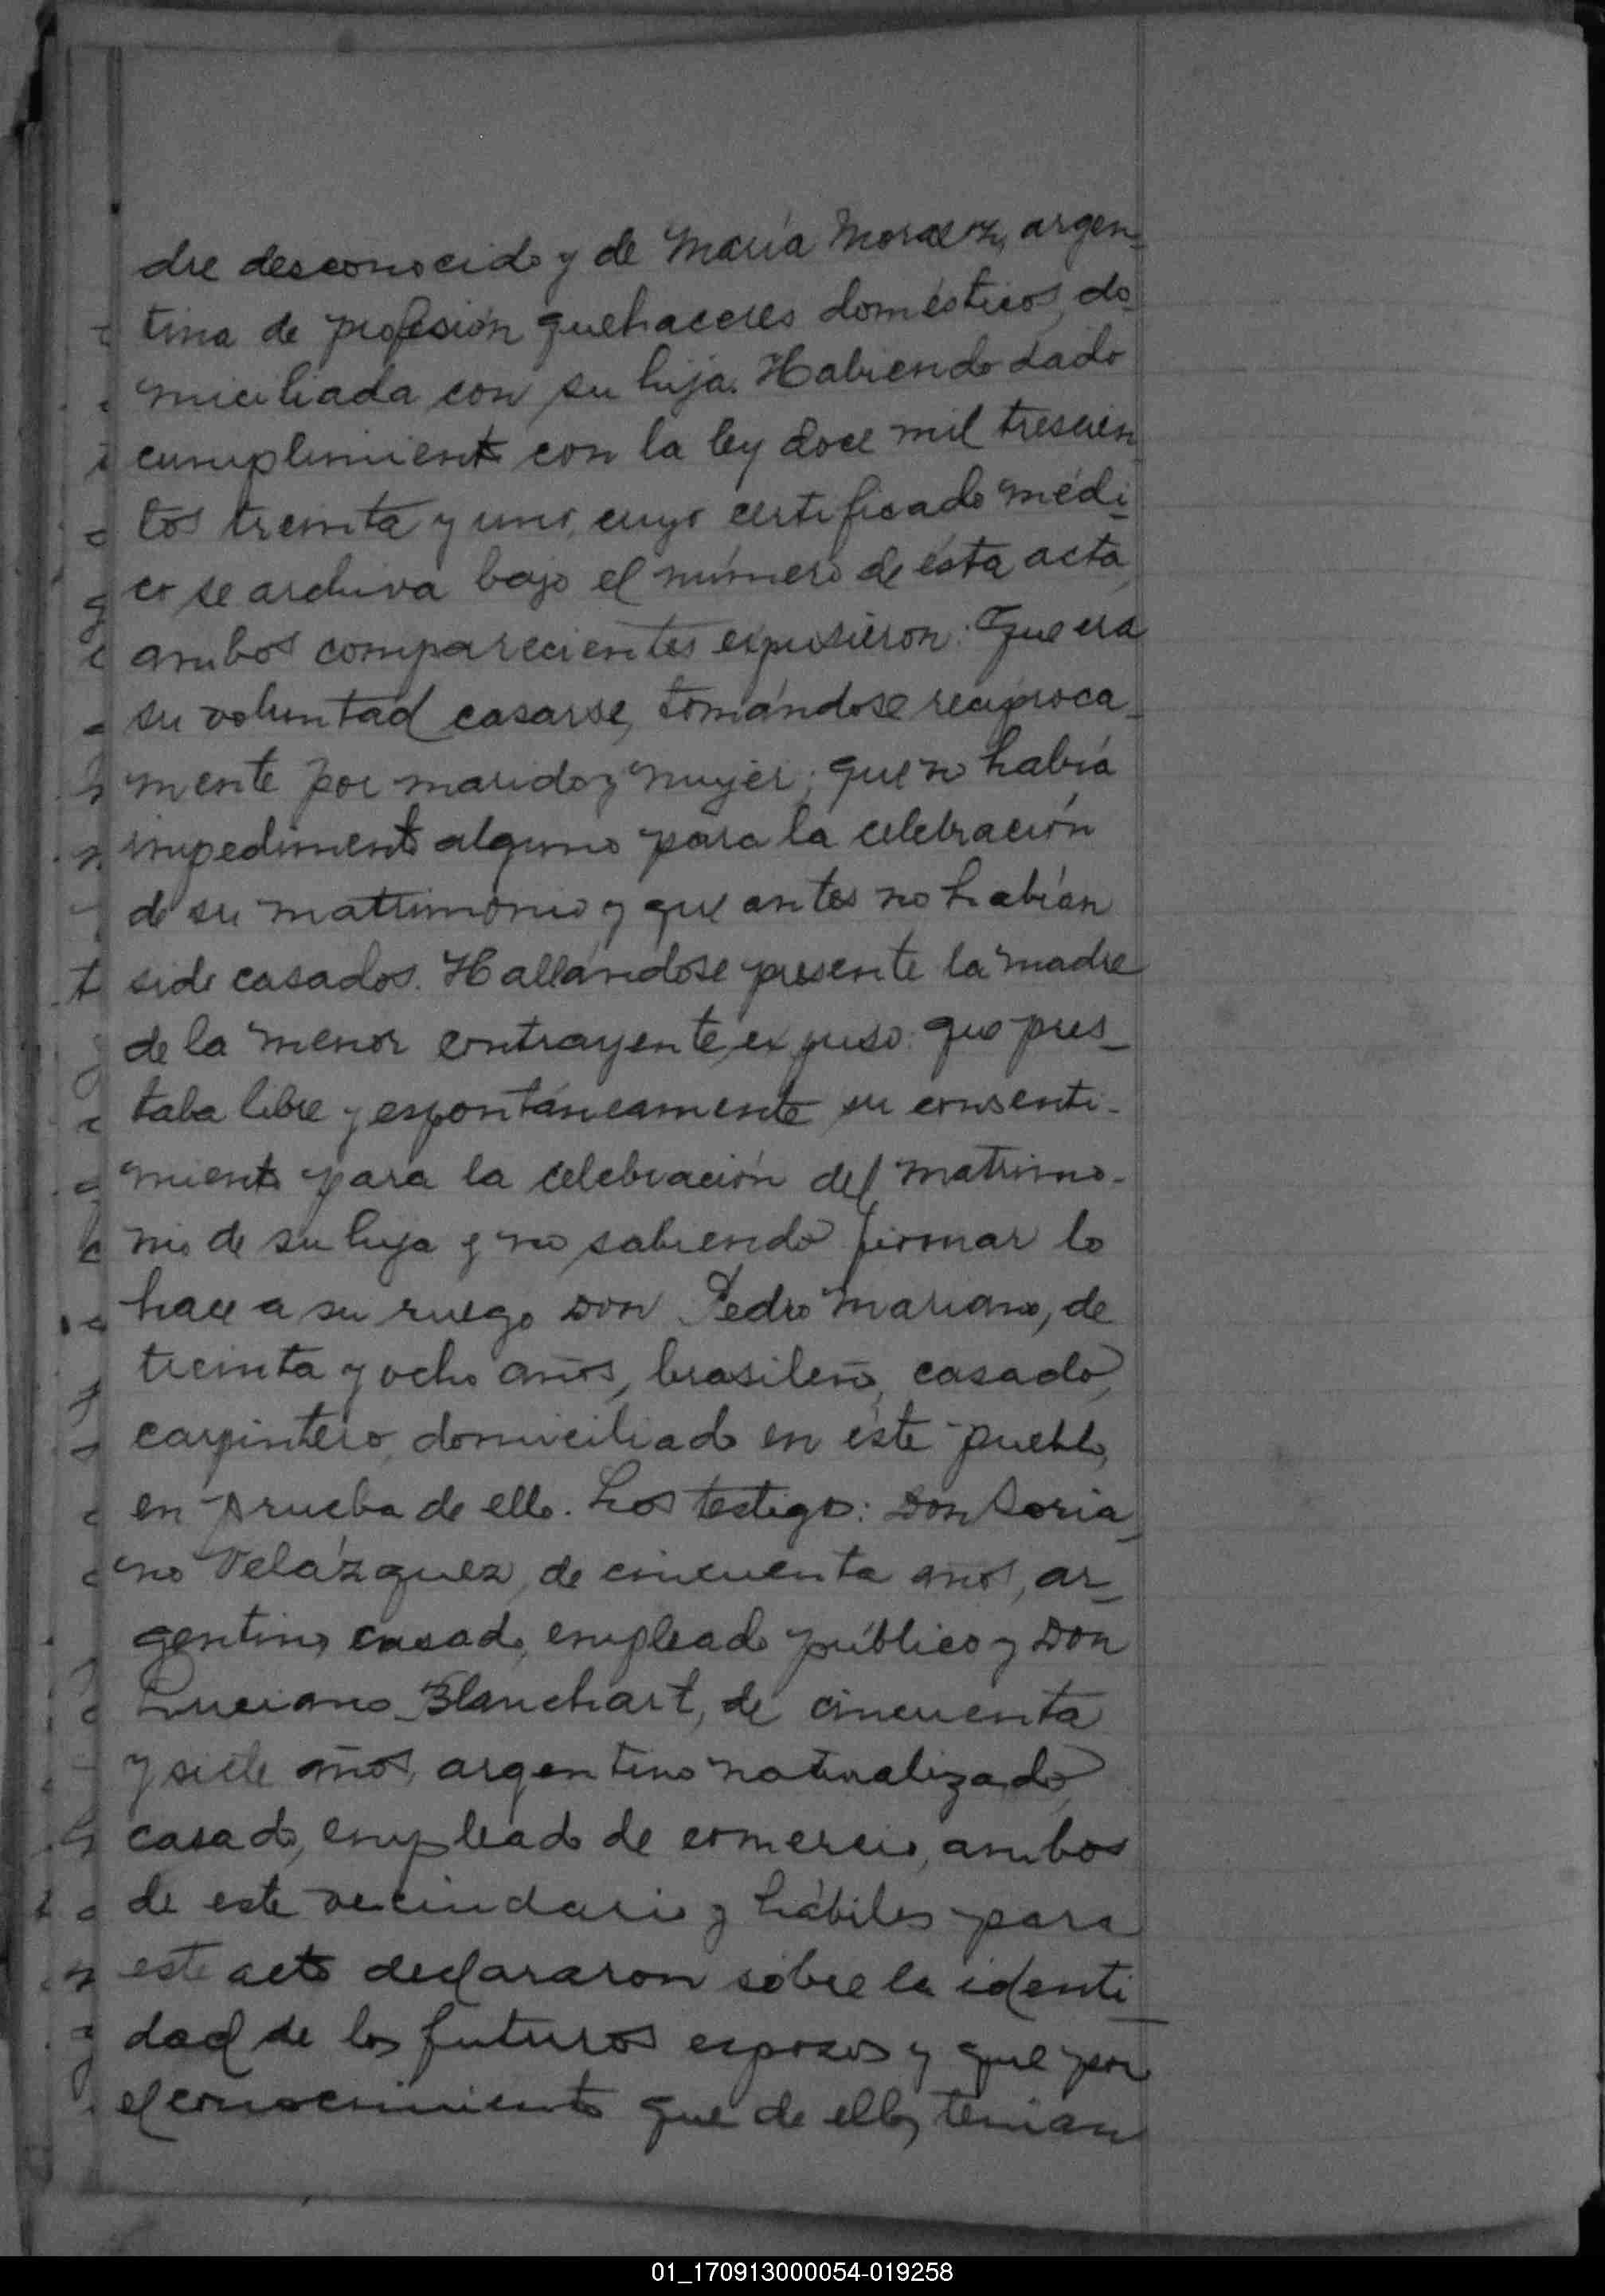 dre desconocido y de María Moraez, argen-
tina de profesión quehaceres domésticos, do-
miciliada con su hija. Habiendo dado
cumplimiento con la ley doce mil trescien-
tos treinta y uno, cuyo certificado médi-
co se archiva bajo el número de ésta acta,
ambos comparecientes expusieron: Que era
su voluntad casarse, tomándose recíproca-
mente por marido y mujer; que no había
impedimento alguno para la celebración
de su matrimonio y que antes no habían
sido casados. Hallándose presente la madre
de la menor contrayente, expuso: que pres-
taba libre y espontáneamente su consenti-
miento para la celebración del matrimo-
nio de su hija y no sabiendo firmar lo
hace a su ruego Don Pedro Mariano, de
treinta y ocho años, brasileño, casado,
carpintero, domiciliado en éste pueblo,
en prueba de ello. Los testigos: Don Soria-
no Velázquez, de cincuenta años, ar-
gentino, casado, empleado público y Don
Luciano Blanchart, de cincuenta
y siete años, argentino naturalizado,
casado, empleado de comercio, ambos
de este vecindario y hábiles para
este acto declararon sobre la identi-
dad de los futuros esposos y que por
el conocimiento que de ellos tenian
01_170913000054-019258